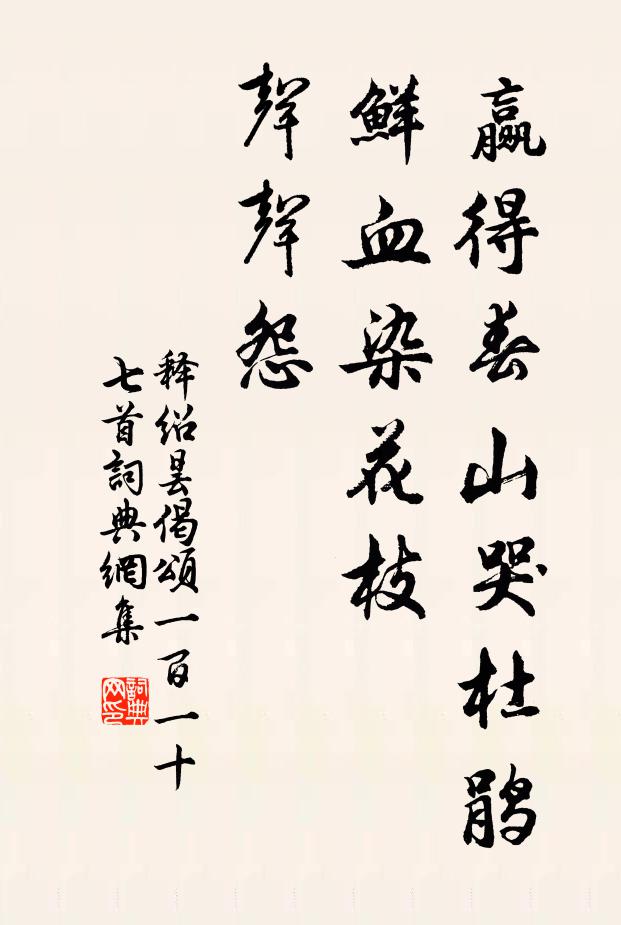 赢得春山哭杜鹃
鲜血染花枝
聲聲怨
释绍昙偈頌一百一十
七首詞典網集
詞典网印